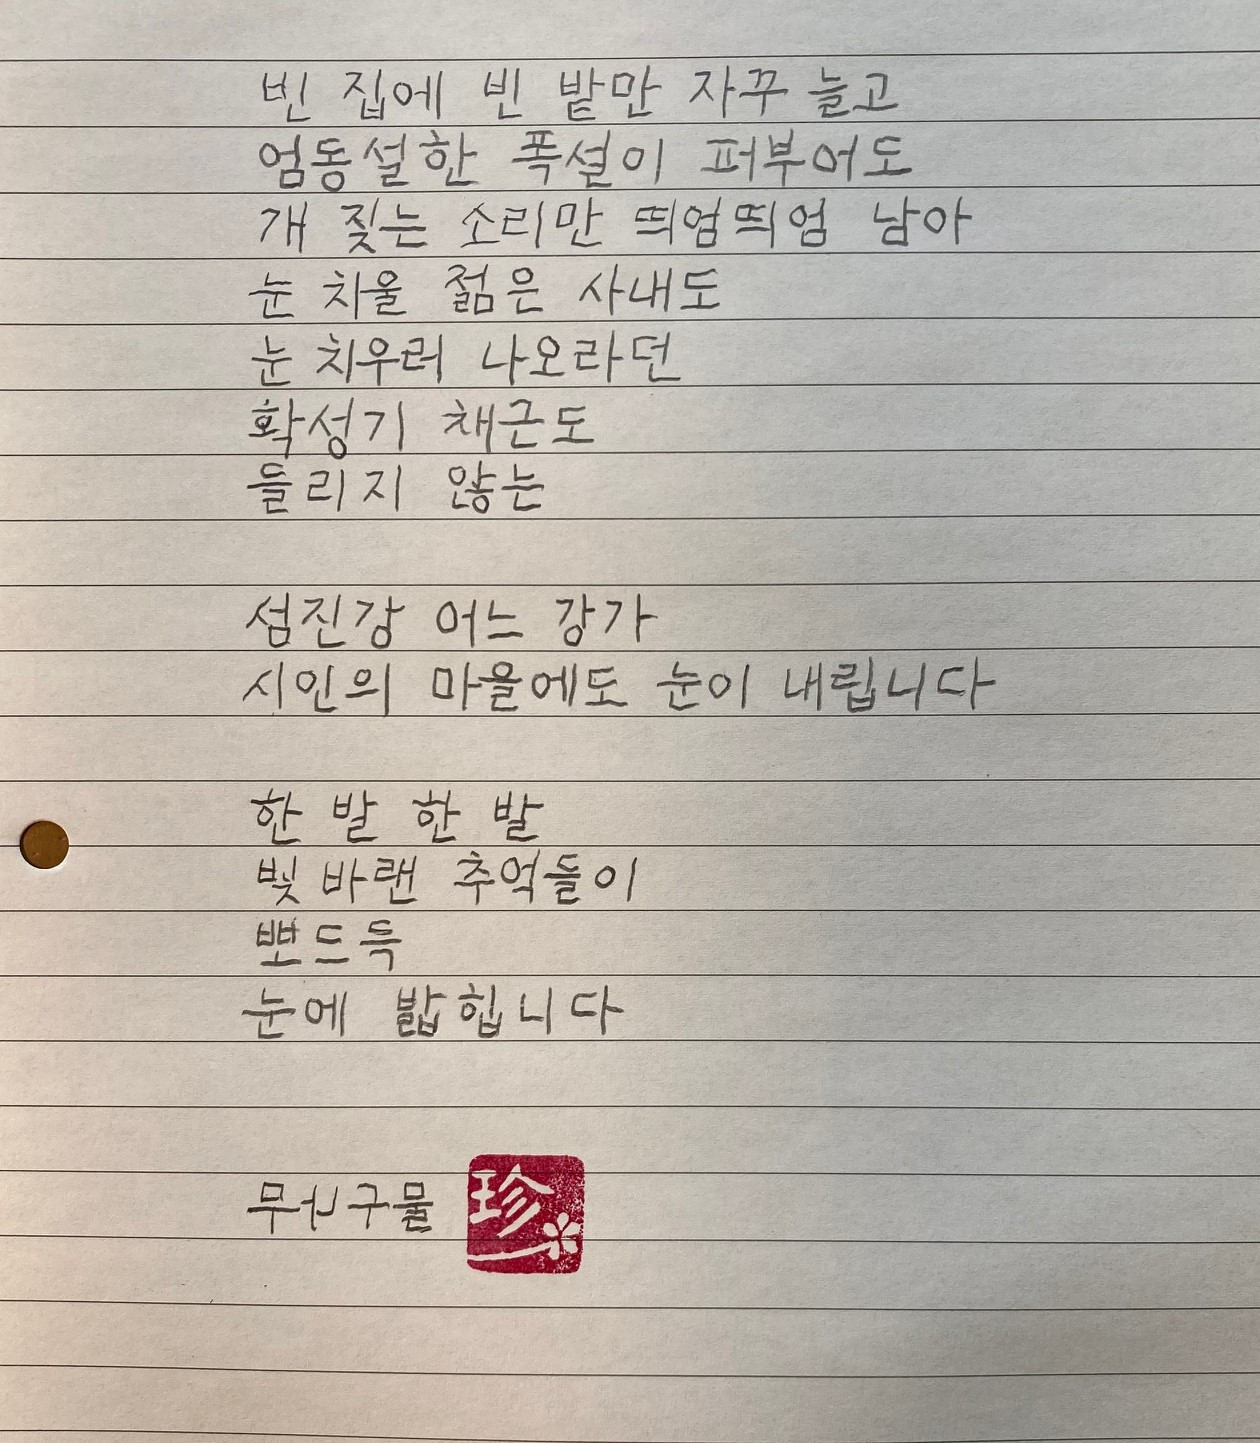 빈 집에 빈 밭만 자꾸 늘고
엄동설한 폭설이 퍼부어도
개 짖는 소리만 띄엄띄엄 남아
눈 치울 젊은 사내도
눈 치우러 나오라던
확성기 채근도
들리지 않는
섬진강 어느 강가
시인의 마을에도 눈이 내립니다
한 발 한 발
빛 바랜 추억들이
뽀드득
눈에 밟힙니다
珍